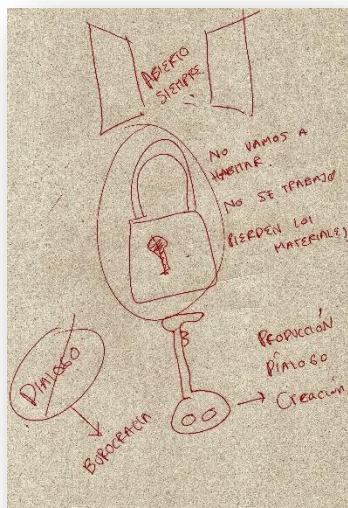 ABIERTO
SIEMPRE
NO VAMOS A
HABITAR.
NO SE TRABAJO
PIERDEN LOS
MATERIALES
DIALOGO
BUROCRACIA
PRODUCCIÓN
DIALOGO
CREACIÓN